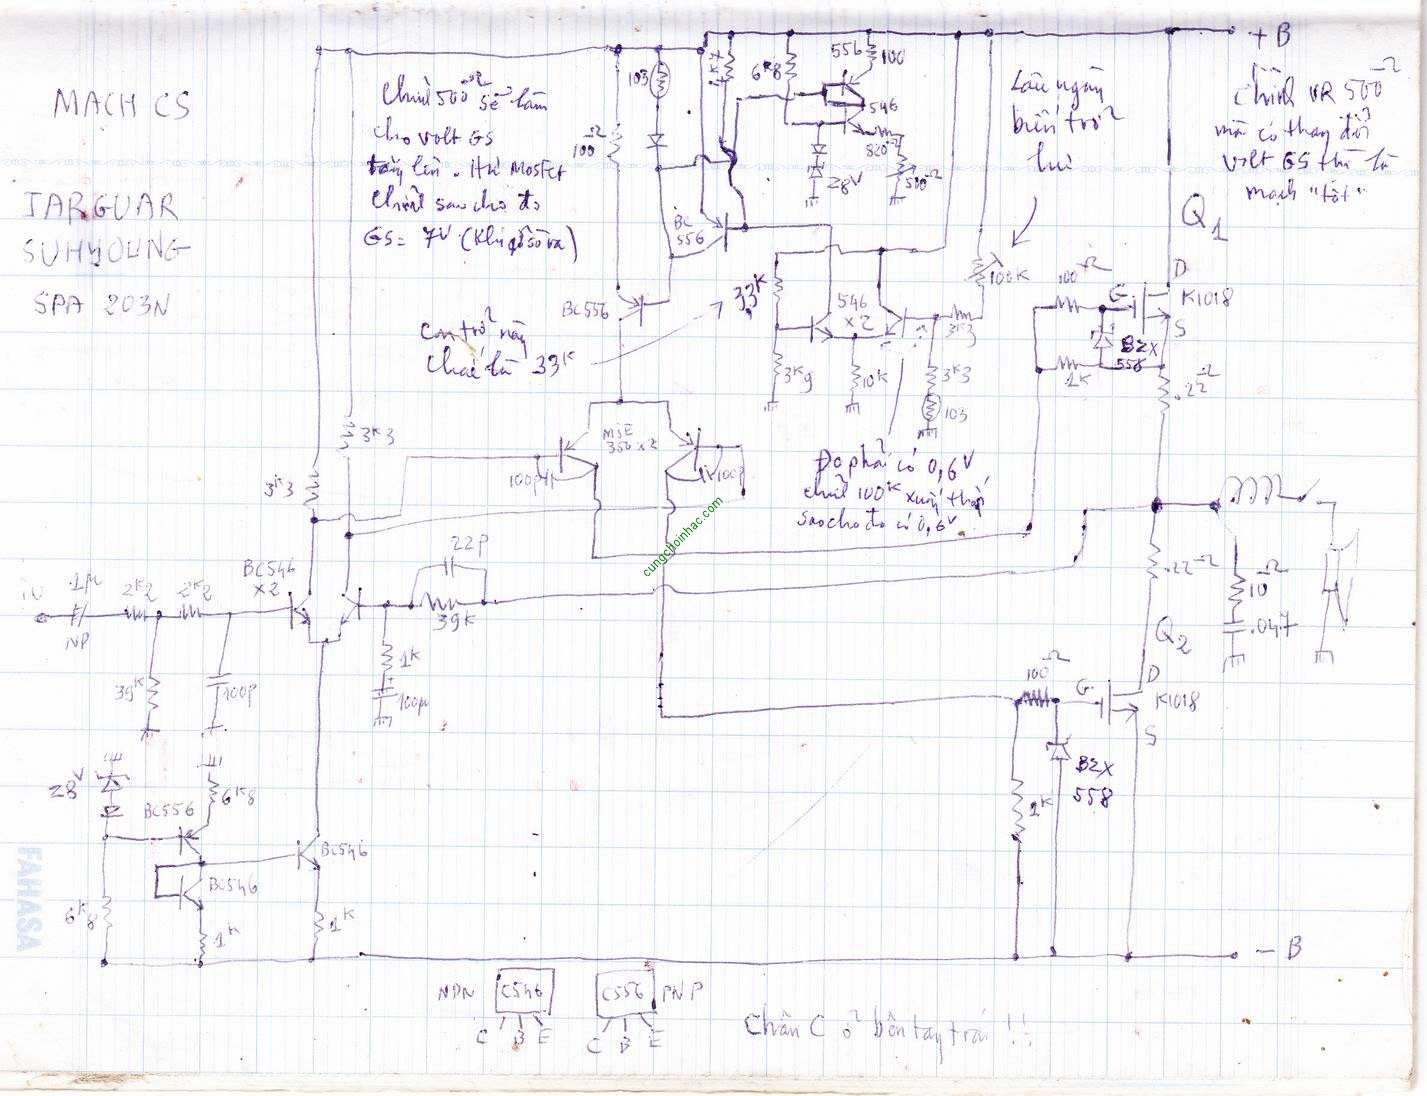 MẠCH CS
JARGUAR
SUHYOUNG
SPA 203N
Chỉnh 500Ω sẽ làm
cho volt GS
tăng lên. Hú Mosfet
Chỉnh sao cho đo
GS = 7V (Khi gỡ sò ra)
+ B
Chỉnh VR 500Ω
mà có thay đổi
volt GS thì là
mạch "tốt"
Lâu ngày
biến trở
lui
con trở này
chắc là 33K
Đo phải có 0,6V
chỉnh 100K xuống thấp
sao cho đo có 0,6V
103
100Ω
1K
6K8
556
100
546
820Ω
Z8V
500Ω
BC
556
BC556
33K
546
x2
100K
3K3
3K9
10K
3K3
103
100Ω
G
D
K1018
S
Q1
BZX
558
1K
.22Ω
MJE
350 x2
100p
100p
3K3
3K3
BC546
x2
22p
39K
1K
100µ
.1µ
NP
2K2
2K2
39K
100p
.22Ω
10Ω
.047
Q2
100Ω
G
D
K1018
S
BZX
558
1K
Z8V
BC556
6K8
BC546
BC546
6K8
1K
1K
- B
NPN
C546
C B E
C556
PNP
C B E
Chân C ở bên tay trái !!
cungchoinhac.com
FAHASA